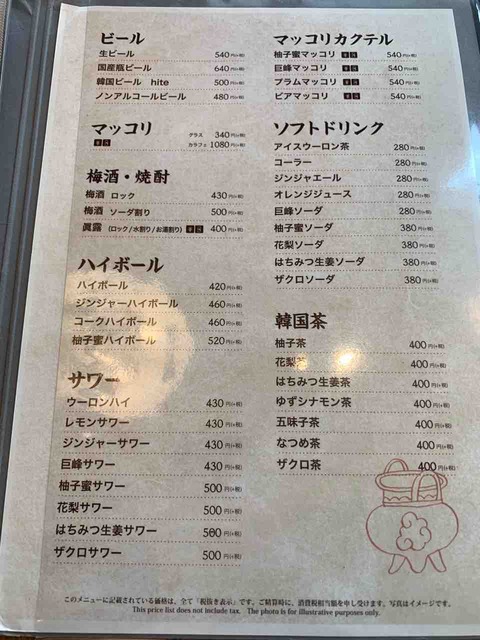 ビール
生ビール 540円(+税)
国産瓶ビール 640円(+税)
韓国ビール hite 500円(+税)
ノンアルコールビール 480円(+税)
マッコリ グラス 340円(+税)
カラフェ 1080円(+税)
梅酒・焼酎
梅酒 ロック 430円(+税)
梅酒 ソーダ割り 500円(+税)
眞露 (ロック/水割り/お湯割り) 400円(+税)
ハイボール
ハイボール 420円(+税)
ジンジャーハイボール 460円(+税)
コークハイボール 460円(+税)
柚子蜜ハイボール 520円(+税)
サワー
ウーロンハイ 430円(+税)
レモンサワー 430円(+税)
ジンジャーサワー 430円(+税)
巨峰サワー 430円(+税)
柚子蜜サワー 500円(+税)
花梨サワー 500円(+税)
はちみつ生姜サワー 500円(+税)
ザクロサワー 500円(+税)
マッコリカクテル
柚子蜜マッコリ 540円(+税)
巨峰マッコリ 540円(+税)
プラムマッコリ 540円(+税)
ビアマッコリ 540円(+税)
ソフトドリンク
アイスウーロン茶 280円(+税)
コーラー 280円(+税)
ジンジャエール 280円(+税)
オレンジジュース 280円(+税)
巨峰ソーダ 280円(+税)
柚子蜜ソーダ 380円(+税)
花梨ソーダ 380円(+税)
はちみつ生姜ソーダ 380円(+税)
ザクロソーダ 380円(+税)
韓国茶
柚子茶 400円(+税)
花梨茶 400円(+税)
はちみつ生姜茶 400円(+税)
ゆずシナモン茶 400円(+税)
五味子茶 400円(+税)
なつめ茶 400円(+税)
ザクロ茶 400円(+税)
このメニューに記載されている価格は、全て「税抜き表示」です。ご精算時に、消費税相当額を申し受けます。写真はイメージです。
This price list does not include tax. The photo is for illustrative purposes only.